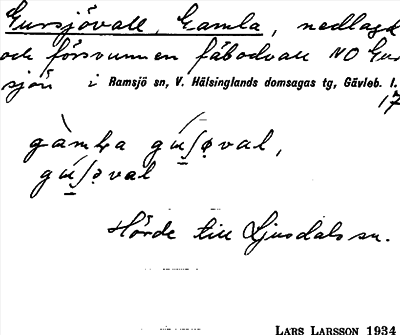 Gursjövall, Gamla, nedlagd
och försvunnen fäbodvall NO Gur
sjön i Ramsjö sn, V. Hälsinglands domsagas tg, Gävleb. l.
17
gàmḷa gú̱ʃøval,
gú̱ʃəval
Hörde till Ljusdals sn.
LARS LARSSON 1934